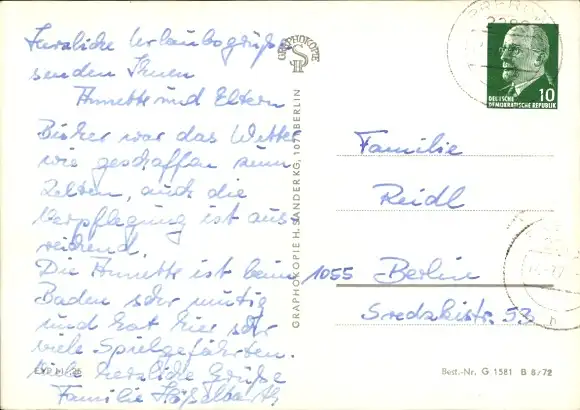 Herzliche Urlaubsgrüße
senden Ihnen
Annette und Eltern
Bisher war das Wetter
wie geschaffen zum
Zelten, auch die
Verpflegung ist aus-
reichend.
Die Annette ist beim
Baden sehr mutig
und hat hier sehr
viele Spielgefährten.
Viele herzliche Grüße
Familie
GRAPHOKOPIE
SH
GRAPHOKOPIE H. SANDER KG, 107 BERLIN
10
DEUTSCHE
DEMOKRATISCHE REPUBLIK
Familie
Reidl
1055 Berlin
Sredzkistr. 53
Best.-Nr. G 1581 B 8/72